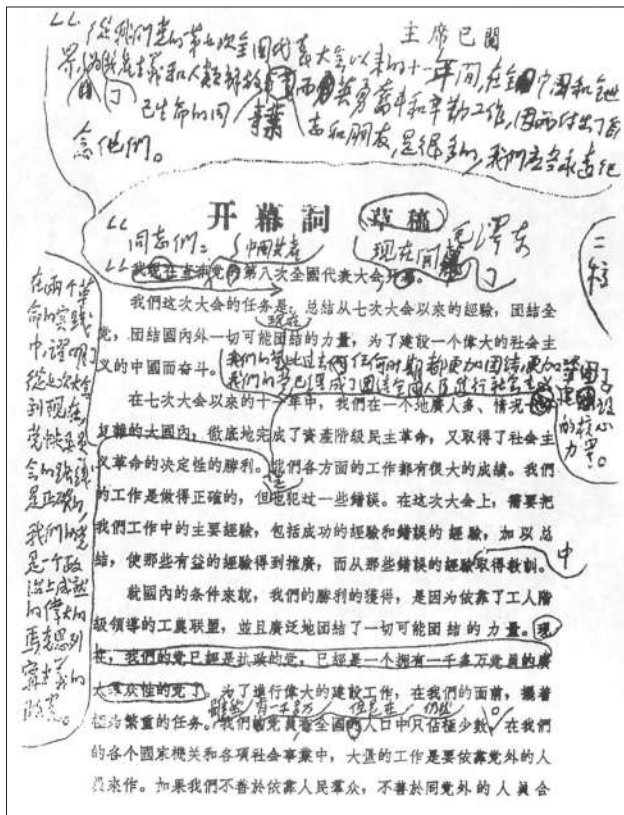 主席已閱
從我們党的第七次全國代表大会以來的十一年間,在全中國和世
界
己生命的同志和朋友,是很多的,我們應当永遠紀
念他們。
开幕詞 (草稿)
毛澤东
同志們:
中國共產
現在開幕了
二校
我現在宣布党的第八次全國代表大会开幕。
我們这次大会的任务是:总结从七次大会以來的經驗,团结全
党,团结國內外一切可能团结的力量,为了建設一个偉大的社会主
現在
义的中國而奋斗。
我們的党比过去任何时期都更加团结,更加
我們的党已經成了团结全國人民進行社会主
在七次大会以來的十一年中,我們在一个地廣人多、情况
复雜的大國內,徹底地完成了資產階級民主革命,又取得了社会主
义革命的决定性的勝利。我們各方面的工作都有很大的成績。我們
的工作是做得正確的,但也犯过一些錯誤。在这次大会上,需要把
我們工作中的主要經驗,包括成功的經驗和錯誤的經驗,加以总
結,使那些有益的經驗得到推廣,而从那些錯誤的經驗取得教訓。
中
就國內的条件來說,我們的勝利的獲得,是因为依靠了工人階
級領導的工農联盟,並且廣泛地团結了一切可能团結的力量。現
在,我們的党已經是执政的党,已經是一个拥有一千多万党員的廣
大羣众性的党了。为了進行偉大的建設工作,在我們的面前,擺着
雖然 有一千多万 但是在 仍然
極为繁重的任务。我們的党員在全國的人口中只佔極少數,在我們
的各个國家機关和各項社会事業中,大量的工作是要依靠党外的人
員來作。如果我們不善於依靠人民羣众,不善於同党外的人員合
在兩个革
命的实践
中,證明了
從七次大会
到現在,
党中央委員
会的路綫
是正確的,
我們的党
是一个政
治上成熟
的偉大的
馬克思列
寧主義的
政党。